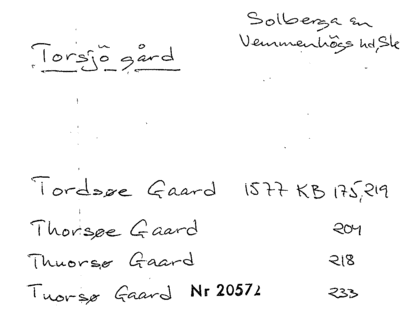 Solberga sn
Vemmenhögs hd, Sk
Torsjö gård
Tordsøe Gaard 1577 KB 175,219
Thorsøe Gaard 204
Thuorsø Gaard 218
Tuorsø Gaard Nr 20572 233